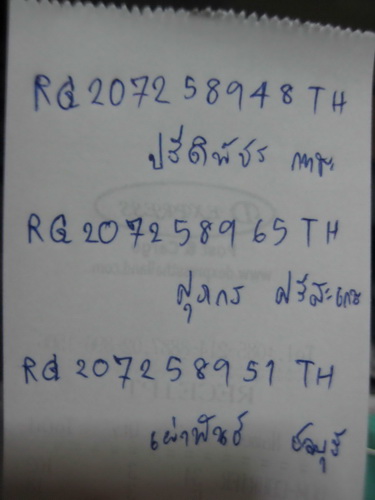 RG 2072 58948 TH
ปรีดิพัชร
RG 2072 589 65 TH
สุภกร ศรีสะเกษ
RG 2072 58951 TH
เผ่าพันธ์ ชลบุรี